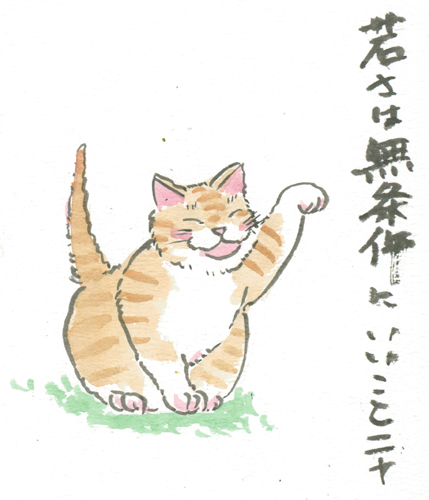 若さは無条件にいいことニャ